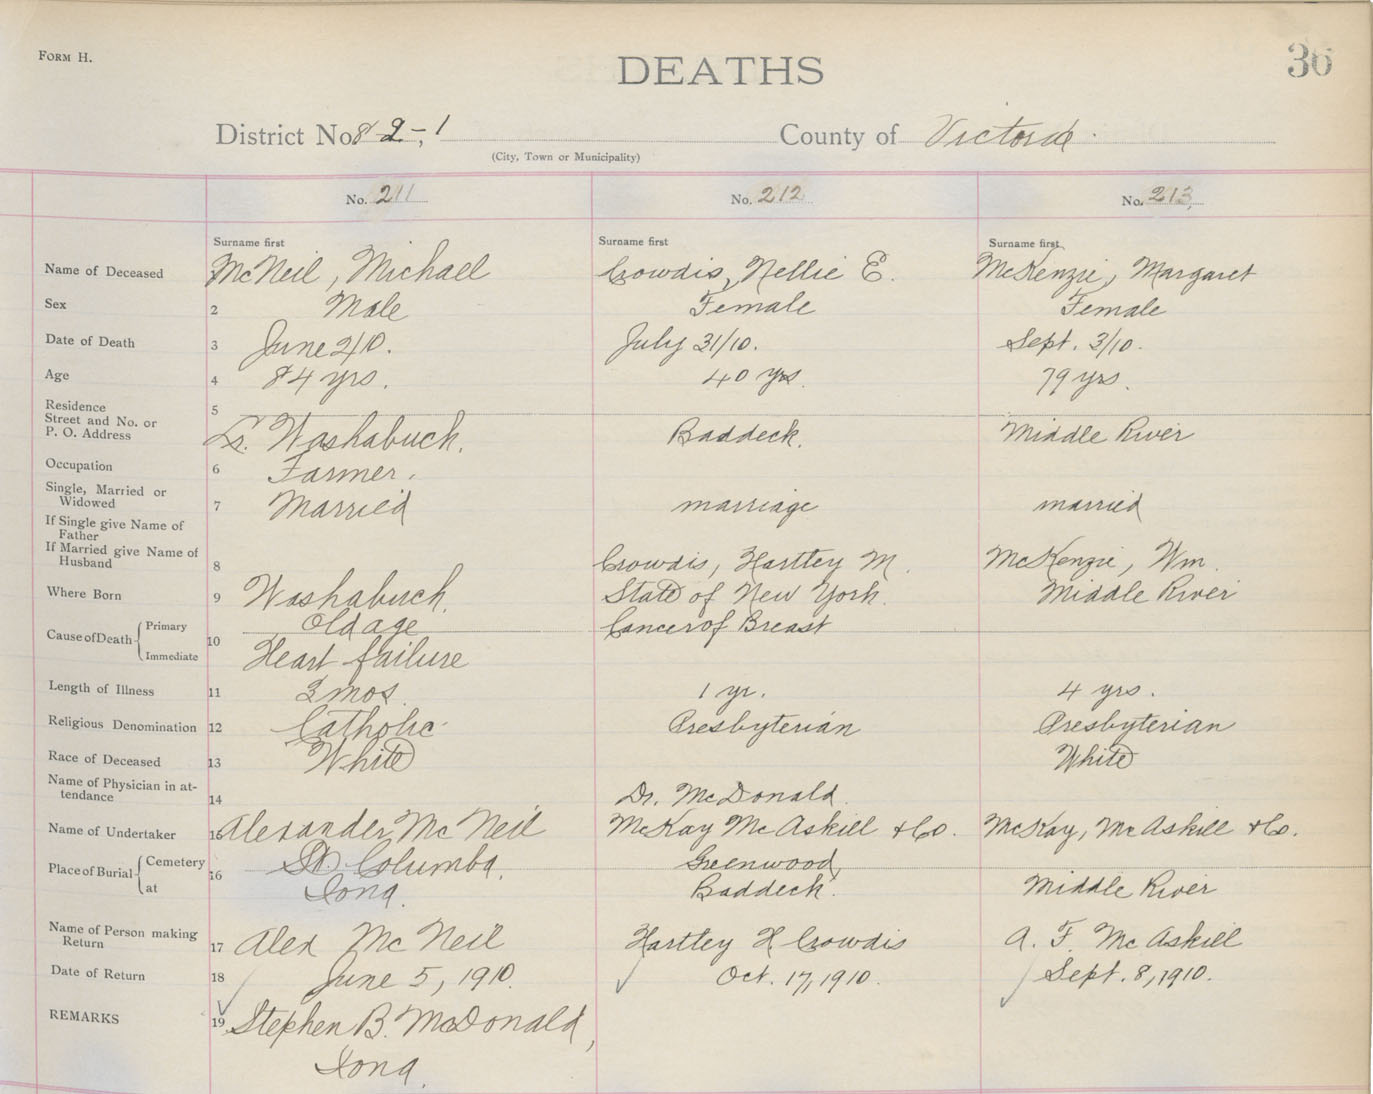 FORM H.
DEATHS
36
District No. 8-2-,1 County of Victoria
(City, Town or Municipality)
No. 211 No. 212 No. 213
Surname first Surname first Surname first
Name of Deceased McNeil, Michael Crowdis, Nellie E. McKenzie, Margaret
Sex 2 Male Female Female
Date of Death 3 June 2/10. July 31/10. Sept. 3/10.
Age 4 84 yrs. 40 yrs. 79 yrs.
Residence 5
Street and No. or
P. O. Address Lr. Washabuck. Baddeck. Middle River
Occupation 6 Farmer.
Single, Married or
Widowed 7 Married marriage married
If Single give Name of
Father
If Married give Name of
Husband 8 Crowdis, Hartley M. McKenzie, Wm.
Where Born 9 Washabuck. State of New York. Middle River
Cause of Death Primary 10 Old age Cancer of Breast
Immediate Heart failure
Length of Illness 11 3 mos. 1 yr. 4 yrs.
Religious Denomination 12 Catholic Presbyterian Presbyterian
Race of Deceased 13 White White
Name of Physician in at-
tendance 14 Dr. McDonald.
Name of Undertaker 15 Alexander McNeil McKay McAskill & Co. McKay, McAskill & Co.
Place of Burial Cemetery 16 St. Columba. Greenwood
at Iona. Baddeck. Middle River
Name of Person making
Return 17 Alex McNeil Hartley H. Crowdis A. F. McAskill
Date of Return 18 June 5, 1910. Oct. 17, 1910. Sept. 8, 1910.
REMARKS 19 Stephen B. McDonald,
Iona.